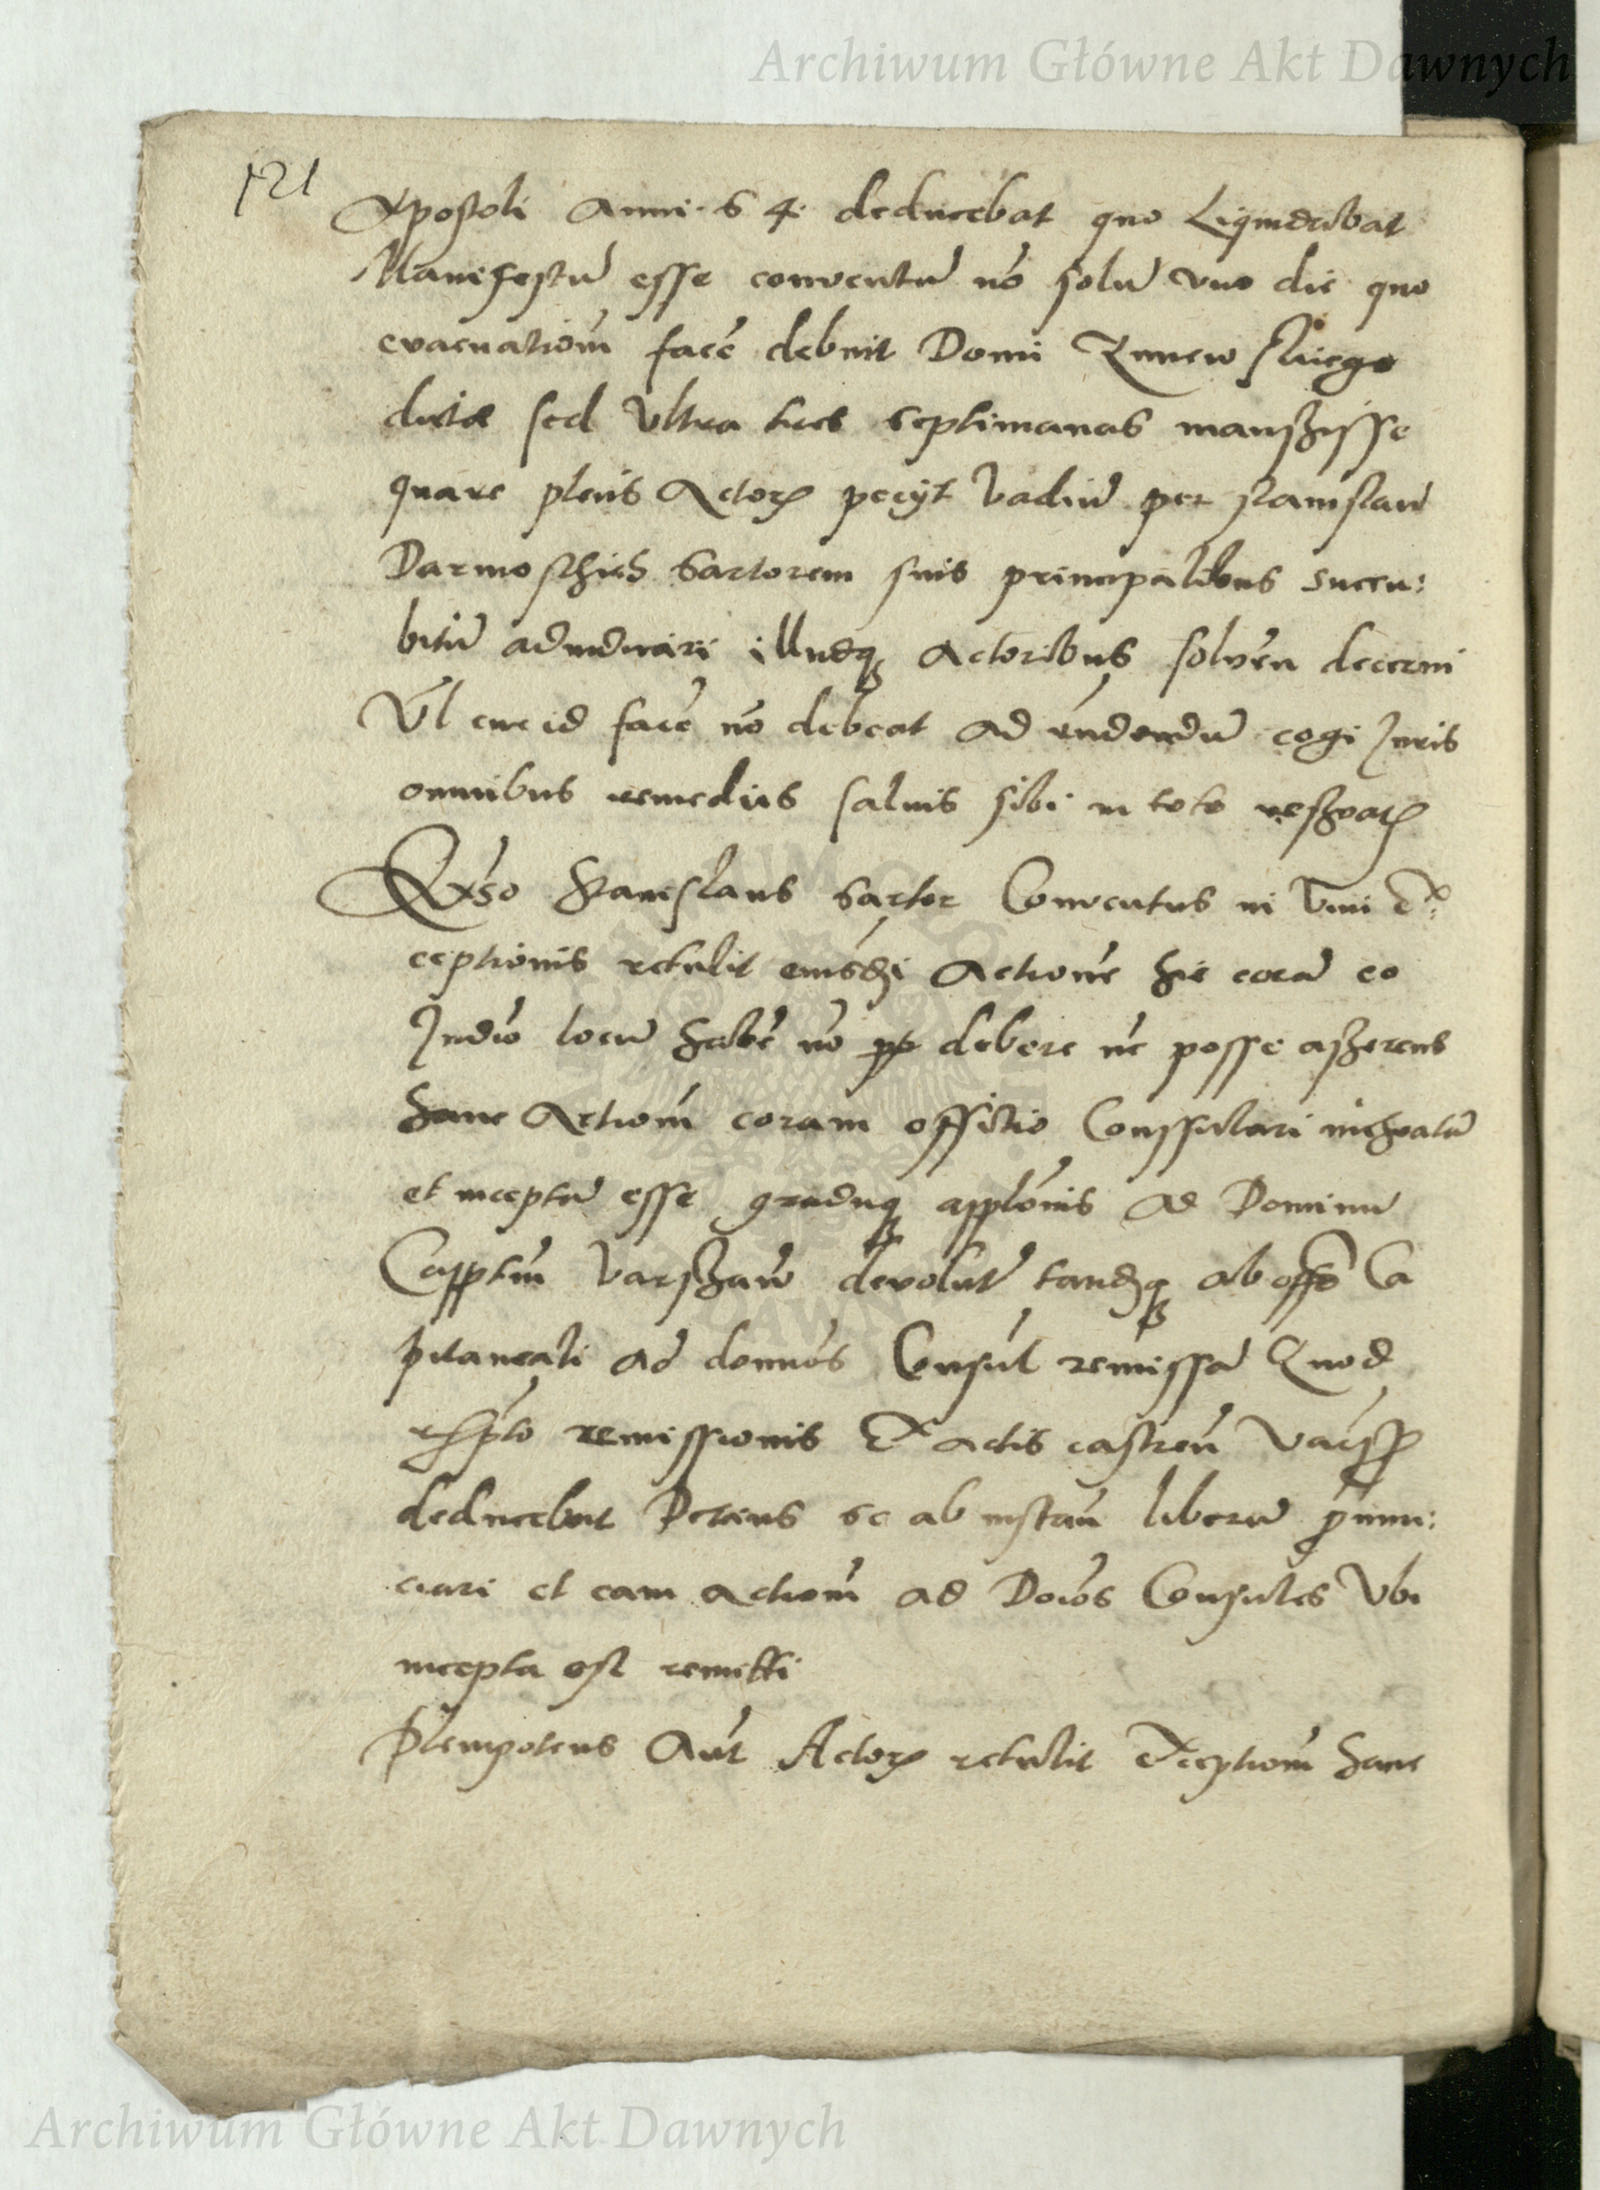 Archiwum Główne Akt Dawnych
121
Apostoli Anni 64 deducebat quo Liquidabat
Manifestū esse conventū nō solū uno die quo
evacuationē facē debuit Domi
dictae sed Ultra tres septimanas manszisse
quare plenis Actorꝫ pecÿt Vadiū per Stanislaū
Darmoschich Sartorem suis principalibus succu:
bitū adiudicari illudqꝫ Actoribus solvēn decerni
Vl cur id facē nō debeat ad rn̄dendū cogi Juris
omnibus remediis salvis sibi in toto reszvatꝫ
Stanislaus Sartor Conventus in Vim Ex:
ceptionis retulit eiusm̄di Actionē hic corā eo
Judiō locū habē nō debere nē posse aszerens
hanc Actionē coram offitio Conssulari inchoatā
et inceptā esse graduqꝫ applōnis ad Dominū
Capptm̄ Varszaw̄ devolutā tandēqꝫ ab offō Ca
pitaneali ad domnōs Consul̄ remissā Quod
rescrp̄to remissionis Ex actis castren̄ Varsꝫ
deducebat Petens se ab instan̄ liberū pronun:
ciari et eam Actionē ad Dōnos Consules Ubi
incepta est remitti
Plenipotens Aūt Actorꝫ retulit Exceptionē hanc
Archiwum Główne Akt Dawnych